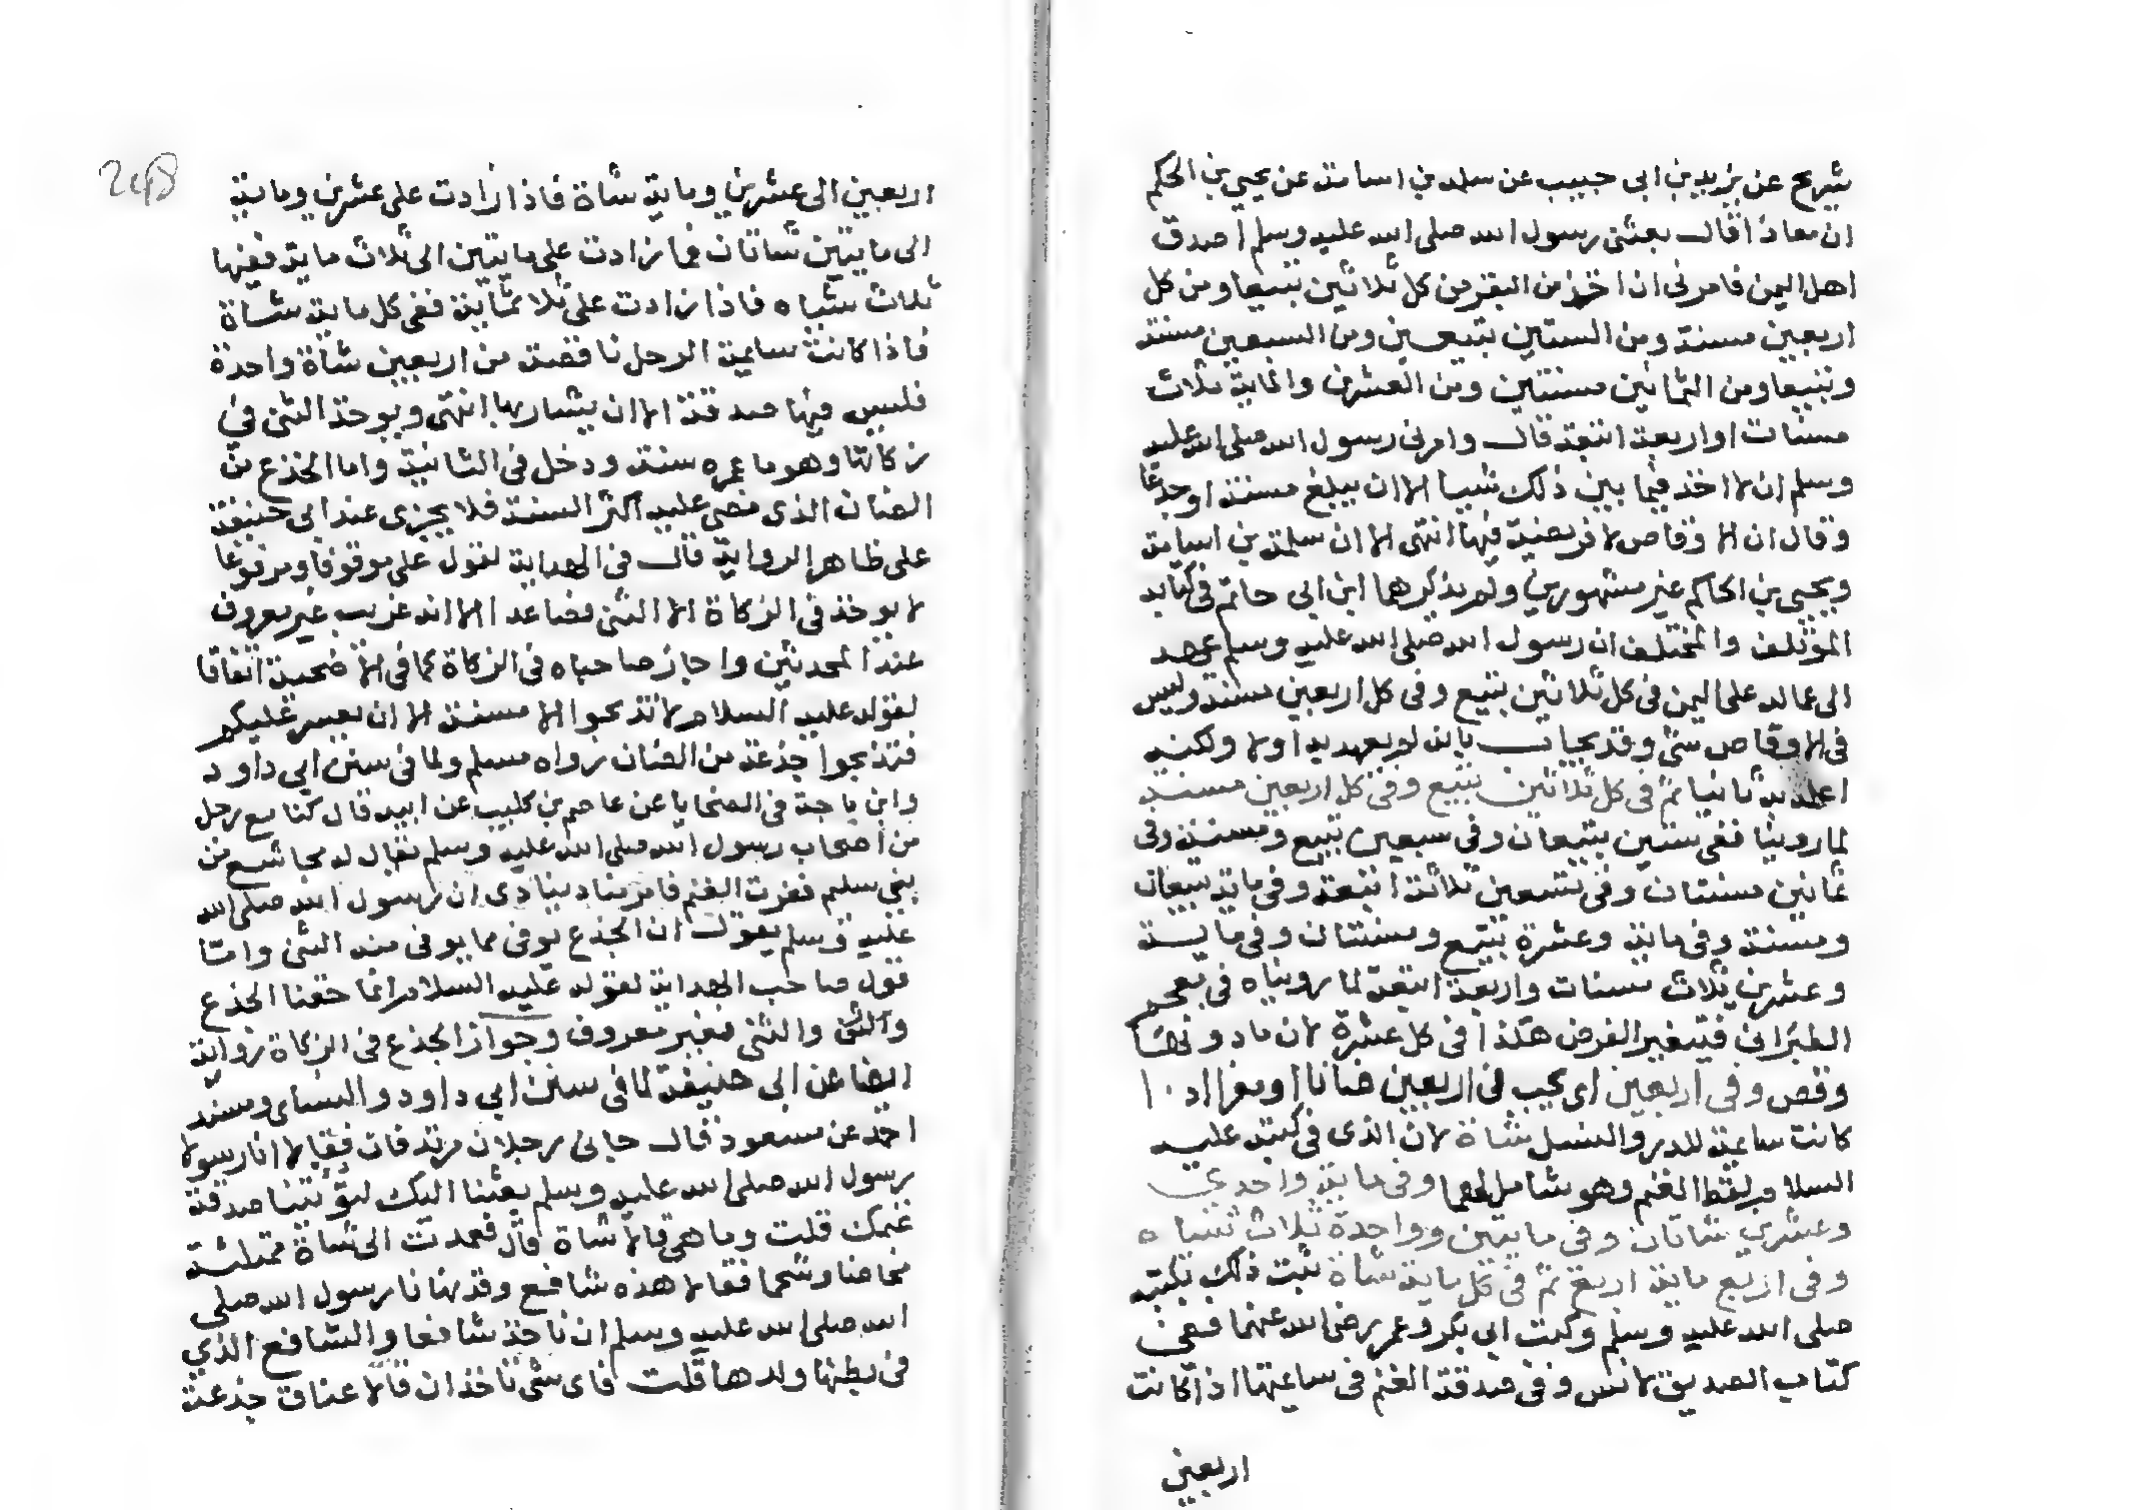 شريح عن يزيد بن ابى حبيب عن سلمه بن اسامة عن يحيى بن الحكم
ان معاذا قال بعثنى رسول الله صلى الله عليه وسلم اصدق
اهل اليمن فامرنى ان اخذ من البقر من كل ثلاثين تبيعا ومن كل
اربعين مسنة ومن الستين تبيعين ومن السبعين مسنة
وتبيعا ومن الثمانين مسنتين ومن العشرين والماية ثلاث
مسنات او اربعة اتبعة قال وامرنى رسول الله صلى الله عليه
وسلم ان لا اخذ فيما بين ذلك شيا الا ان يبلغ مسنة او جذعا
وقال ان الاوقاص لا فريضة فيها انتهى الا ان سلمة بن اسامة
ويحيى بن الحاكم غير مشهورين ولم يذكرهما ابن ابى حاتم فى كتابه
المؤتلف والمختلف ان رسول الله صلى الله عليه وسلم عهد
الى عماله على اليمن فى كل ثلاثين تبيع وفى كل اربعين مسنة وليس
فى الاوقاص شئ وقد يجاب بانه لم يعهد به اولا ولكنه
اعلم به ثانيا ثم فى كل ثلاثين تبيع وفى كل اربعين مسنة
لما روينا ففى ستين تبيعان وفى سبعين تبيع ومسنة وفى
ثمانين مسنتان وفى تسعين ثلاثة اتبعة وفى ماية تبيعان
ومسنة وفى ماية وعشرة تبيع ومسنتان وفى ماية
وعشرين ثلاث مسنات واربعة اتبعة لما رويناه فى معجم
الطبرانى فيتغير الفرض هكذا فى كل عشرة لان ما دونها
وقص وفى اربعين اى يجب فى اربعين ضانا او معزا اذا
كانت سايمة للدر والنسل شاة لان الذى فى كتبه عليه
السلام بلفظ الغنم وهو شامل لهما وفى ماية واحدى
وعشرين شاتان وفى مايتين وواحدة ثلاث شياه
وفى اربع ماية اربع ثم فى كل ماية شاة ثبت ذلك بكتبه
صلى الله عليه وسلم وكتب ابى بكر وعمر رضى الله عنهما ففى
كتاب الصديق لانس وفى صدقة الغنم فى سايمتها اذا كانت
اربعين
248
اربعين الى عشرين وماية شاة فاذا زادت على عشرين وماية
الى مايتين شاتان فما زادت على مايتين الى ثلاث ماية ففيها
ثلاث شياه فاذا زادت على ثلاثماية ففى كل ماية شاة
فاذا كانت سايمة الرجل ناقصة من اربعين شاة واحدة
فليس فيها صدقة الا ان يشا ربها انتهى ويوخذ الثنى فى
زكاتها وهو ما عمره سنة ودخل فى الثانية واما الجذع من
الضان الذى مضى عليه اكثر السنة فلا يجزى عند ابى حنيفة
على ظاهر الرواية قال فى الهداية لقول على موقوفا ومرفوعا
لا يوخذ فى الزكاة الا الثنى فصاعدا الا انه غريب غير معروف
عند المحدثين واجاز صاحباه فى الزكاة كما فى الاضحية اتفاقا
لقوله عليه السلام لا تذبحوا الا مسنة الا ان يعسر عليكم
فتذبحوا جذعة من الضان رواه مسلم ولما فى سنن ابى داود
وابن ماجة فى الضحايا عن عاصم بن كليب عن ابيه قال كنا مع رجل
من اصحاب رسول الله صلى الله عليه وسلم يقال له مجاشع من
بنى سليم فعزت الغنم فامر مناديا ينادى ان رسول الله صلى الله
عليه وسلم يقول ان الجذع يوفى مما يوفى منه الثنى واما
قول صاحب الهداية لقوله عليه السلام انما حقنا الجذع
والثنى فغير معروف وجواز الجذع فى الزكاة رواية
ايضا عن ابى حنيفة لما فى سنن ابى داود والنساى ومسند
احمد عن مسعود قال جانى رجلان مرتدفان فقالا انا رسولا
رسول الله صلى الله عليه وسلم بعثنا اليك لتؤتينا صدقة
غنمك قلت وما هى قالا شاة قال فعمدت الى شاة ممتلئة
مخاضا وشحما فقالا هذه شافع وقد نهانا رسول الله صلى
الله صلى الله عليه وسلم ان ناخذ شافعا والشافع الذي
فى بطنها ولدها قلت فاى شئ تاخذان قالا عناق جذعة